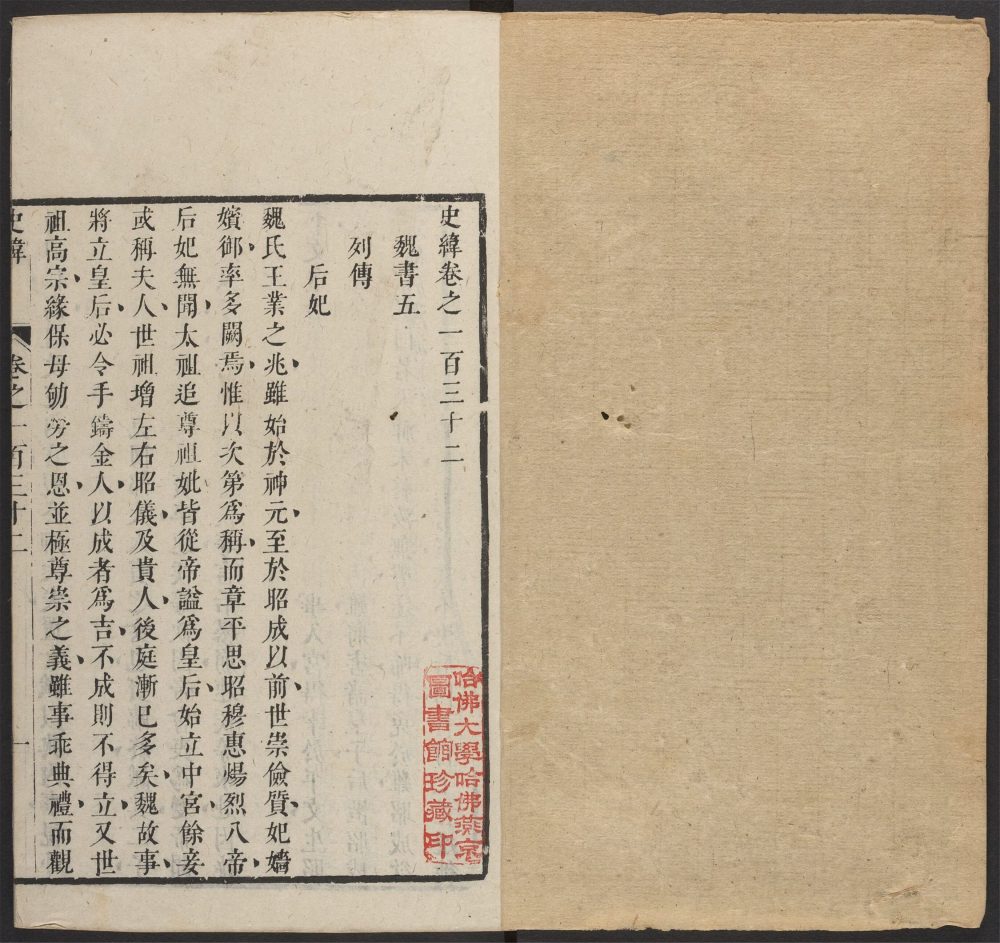 史緯卷之一百三十二
魏書五
列傳
后妃
魏氏王業之兆雖始於神元至於昭成以前世崇儉質妃嬙
嬪御率多闕焉惟以次第為稱而章平思昭穆惠煬烈八帝
后妃無聞太祖追尊祖妣皆從帝謚為皇后始立中宮餘妾
或稱夫人世祖增左右昭儀及貴人後庭漸已多矣魏故事
將立皇后必令手鑄金人以成者為吉不成則不得立又世
祖高宗緣保母劬勞之恩並極尊崇之義雖事乖典禮而觀
史緯
卷之一百三十二
一
哈佛大學哈佛燕京
圖書館珍藏印